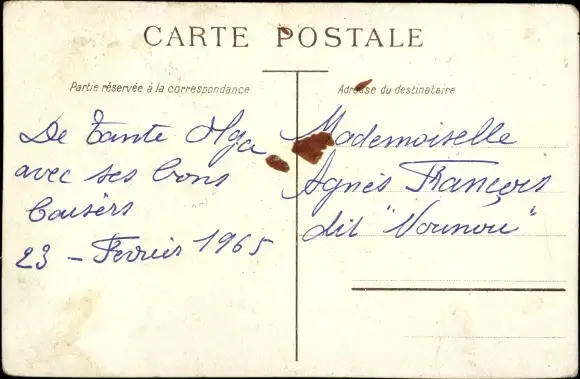 CARTE POSTALE
Partie réservée à la correspondance
Adresse du destinataire
De Tante Olga
avec ses bons
baisers
23 - Fevrier 1965
Mademoiselle
Agnès François
dit "Nounou"